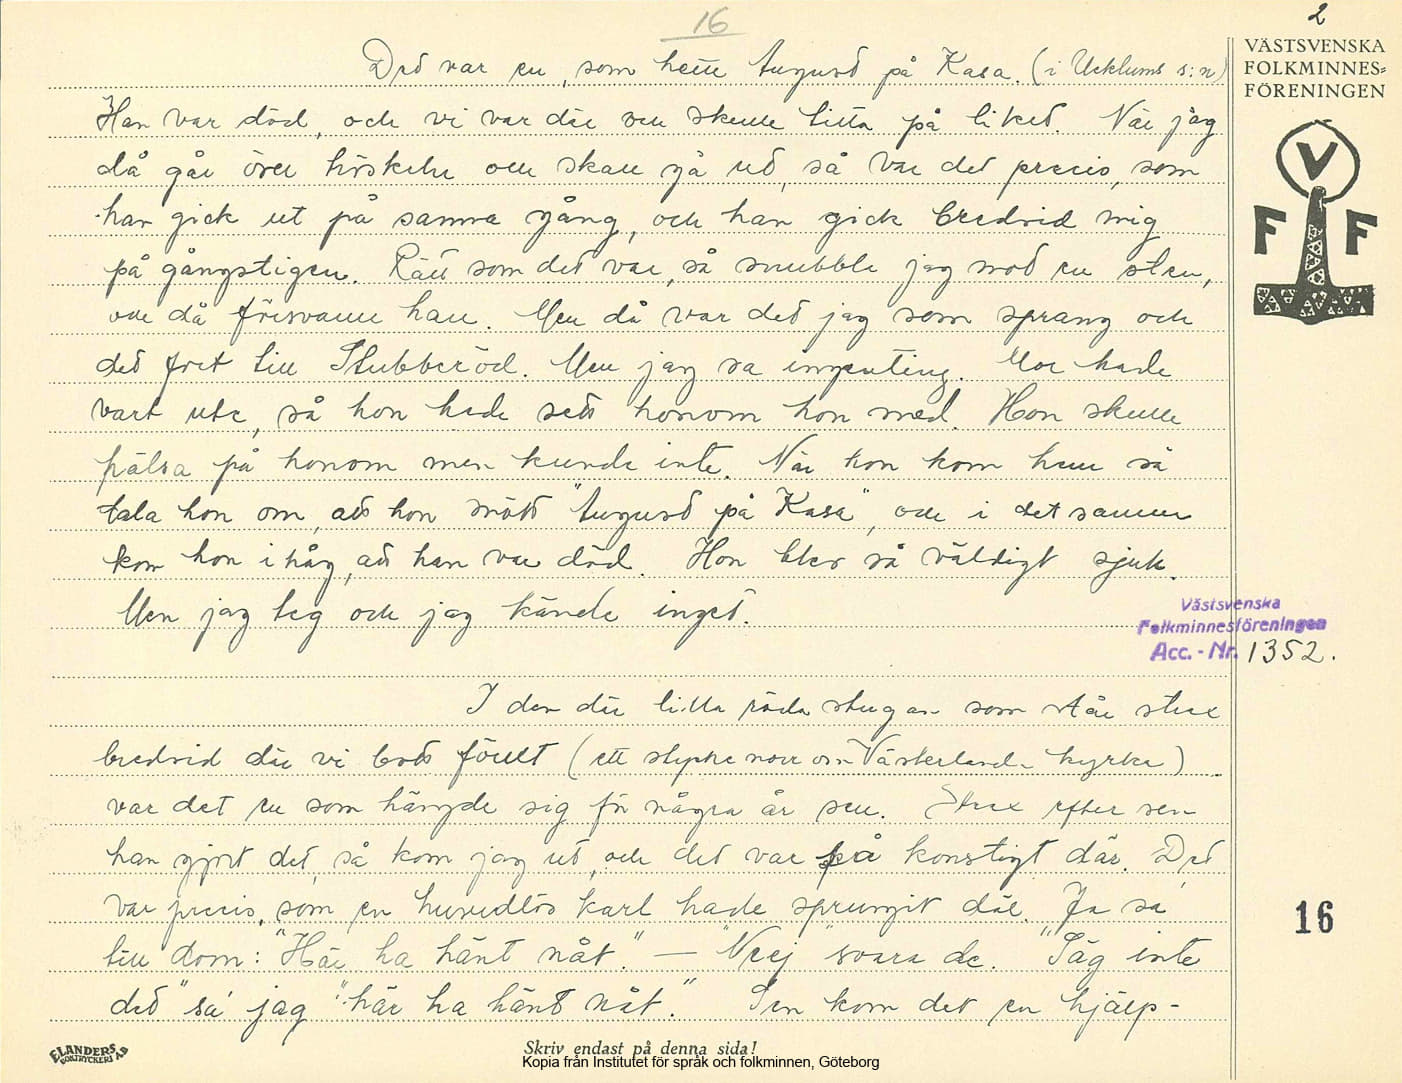 16
2
VÄSTSVENSKA
FOLKMINNES-
FÖRENINGEN
V
F F
Det var en, som hette August på Kasa. (i Ucklums s:n)
Han var död, och vi var där och skulle titta på liket. När jag
då går över tröskeln och skall gå ut, så var det precis, som
han gick ut på samma gång, och han gick bredvid mig
på gångstigen. Rätt som det var, så snubble jag mot en sten,
och då försvann han. Men då var det jag som sprang och
det fort till Stubberöd. Men jag sa ingenting. Mor hade
vart ute, så hon hade sett honom hon med. Hon skulle
hälsa på honom men kunde inte. När hon kom hem så
tala hon om, att hon mött "August på Kasa", och i det samma
kom hon ihåg, att han var död. Hon blev så väldigt sjuk.
Men jag teg och jag kände inget.
Västsvenska
Folkminnesföreningen
Acc. - Nr. 1352.
I den där lilla röda stugan som står strax
bredvid där vi bott förut (ett stycke norr om Västerlanda kyrka)
var det en som hängde sig för några år sen. Strax efter sen
han gjort det, så kom jag ut, och det var så konstigt där. Det
var precis, som en huvudlös karl hade sprungit där. Ja sa
till dom: "Här ha hänt nåt." — "Neej" svara de. "Säg inte
det" sa' jag "här ha hänt nåt." Sen kom det en hjälp-
16
ELANDERS
BOKTRYCKERI AB
Skriv endast på denna sida!
Kopia från Institutet för språk och folkminnen, Göteborg